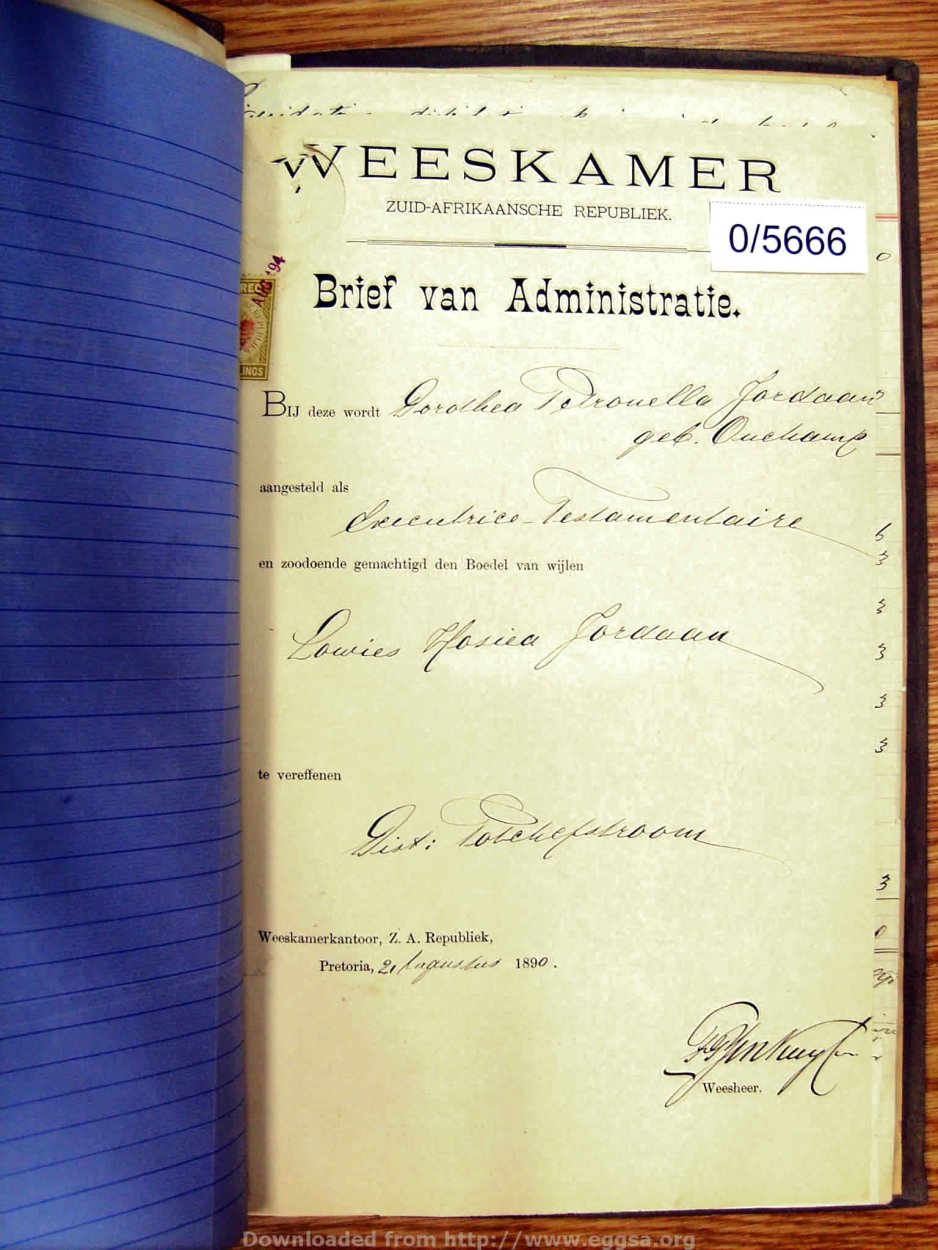 WEESKAMER
ZUID-AFRIKAANSCHE REPUBLIEK.
0/5666
AUG '94
Brief van Administratie.
BIJ deze wordt Dorothea Petronella Jordaan
geb. Ouchamp
aangesteld als
Executrice-Testamentaire
en zoodoende gemachtigd den Boedel van wijlen
Lowies Hosiea Jordaan
te vereffenen
Dist: Potchefstroom
Weeskamerkantoor, Z. A. Republiek,
Pretoria, 21 Augustus 1890.
Weesheer.
Downloaded from http://www.eggsa.org